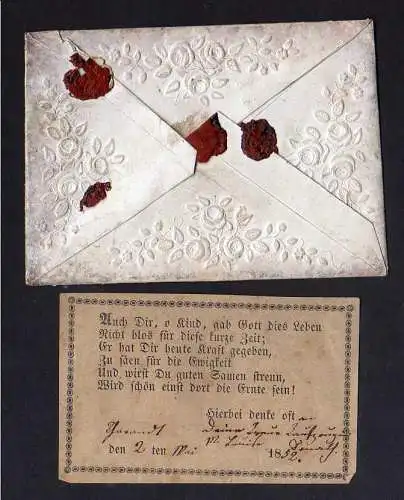 Auch Dir, o Kind, gab Gott dies Leben
Nicht blos für diese kurze Zeit;
Er hat Dir heute Kraft gegeben,
Zu säen für die Ewigkeit
Und wirst Du guten Samen streun,
Wird schön einst dort die Ernte sein!
Hierbei denke oft an
Tharandt Deine treue Taufzeugin
den 2 ten Mai 1852.